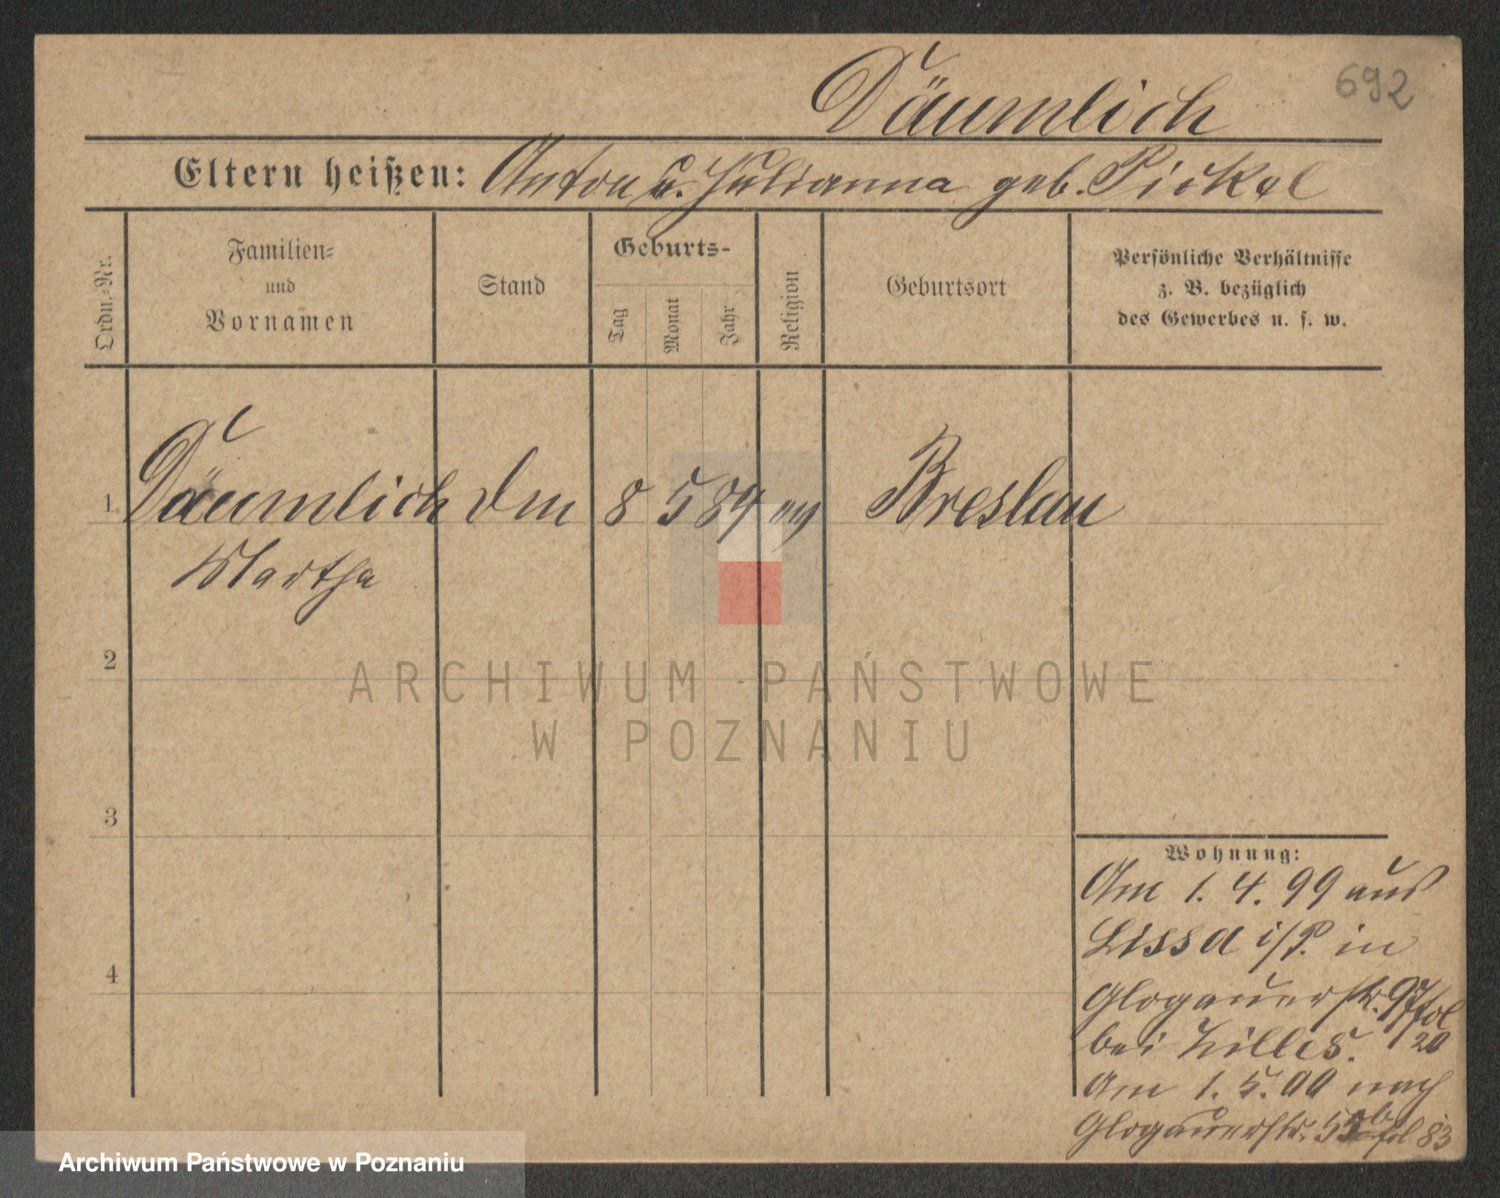 692
Däumlich
Eltern heißen: Anton u. Julianna geb. Pickel
Ordn.-Nr.
Familien-
und
Vornamen
Stand
Geburts-
Tag
Monat
Jahr
Religion
Geburtsort
Persönliche Verhältnisse
z. B. bezüglich
des Gewerbes u. s. w.
1 Däumlich 8 5 84 Breslau
Martha
2
3
4
Wohnung:
Am 1. 4. 99 aus
Lissa i/P. in
Glogauerstr. 97 fol
bei 20
Am 1. 5. 00 nach
Glogauerstr. fol 83
ARCHIWUM PAŃSTWOWE
W POZNANIU
Archiwum Państwowe w Poznaniu